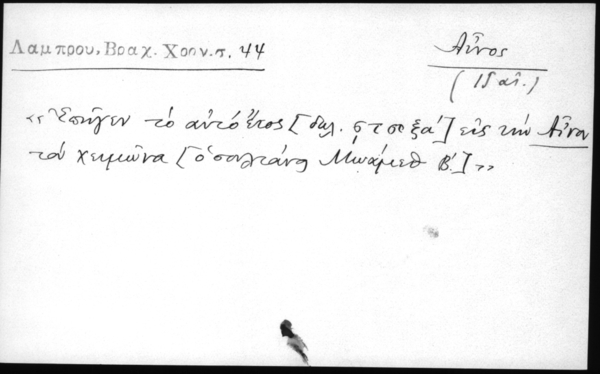 Λαμπρου, Βραχ. Χρον. σ. 44
Αἶνος
(15 αἰ.)
«Ἐπῆγεν τὸ αὐτὸ ἔτος [δηλ. ϛ ϡ ξα'] εἰς τὴν Αἶνο
τὸν χειμῶνα [ὁ σουλτάνος Μωάμεθ Β'.]»